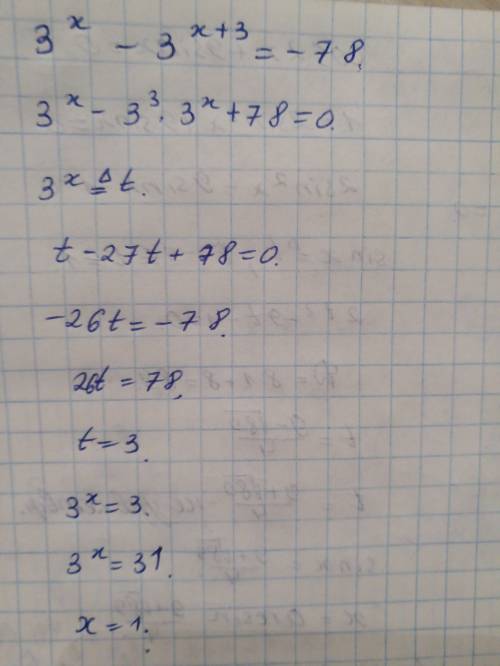 3^x - 3^{x+3} = -78.
3^x - 3^3 · 3^x + 78 = 0.
3^x ≜ t.
t - 27t + 78 = 0.
-26t = -78.
26t = 78.
t = 3.
3^x = 3.
3^x = 3^1.
x = 1.